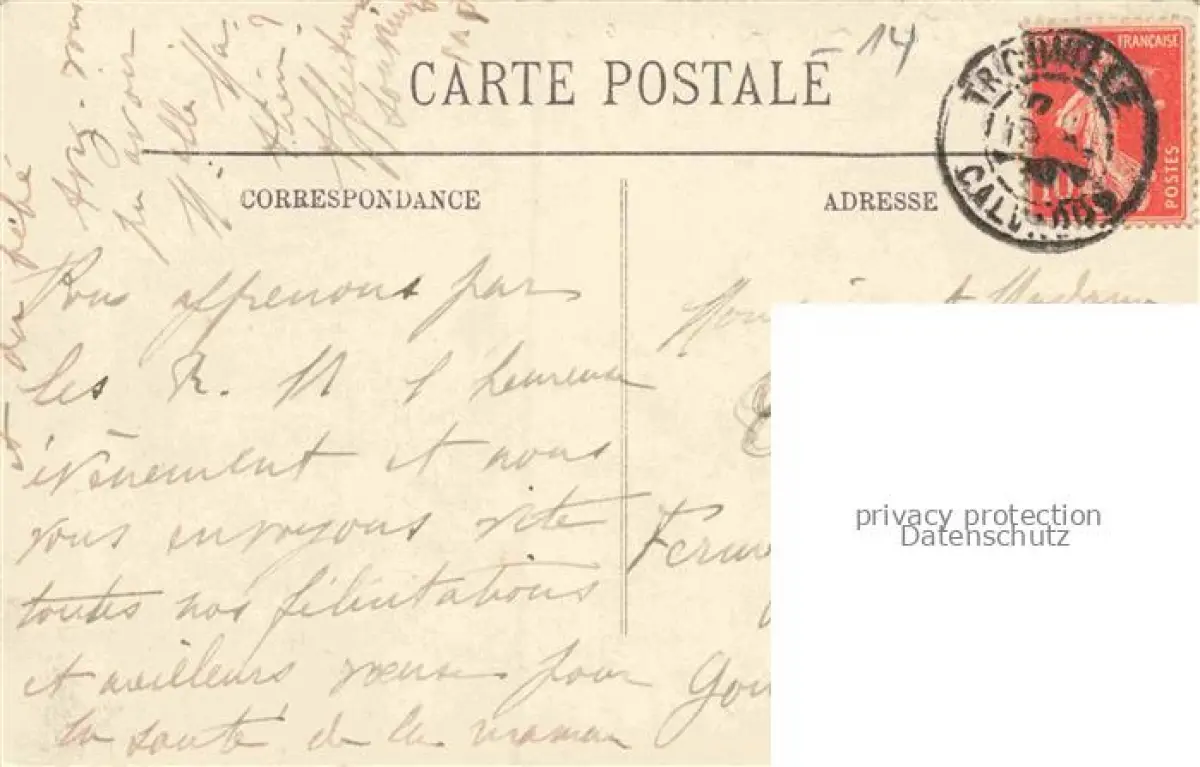 14
CARTE POSTALE
FRANÇAISE
POSTES
10
TROUVILLE
CALVADOS
CORRESPONDANCE
ADRESSE
Nous apprenons par
les R. M l'heureux
évènement et nous
vous envoyons vite
toutes nos félicitations
et meilleurs vœux pour
la santé de la maman
et du bébé
Avez-vous
pu avoir
Affectueux
Madame
privacy protection
Datenschutz